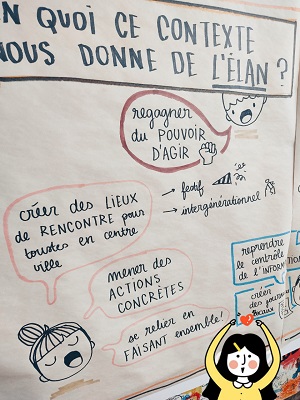 N QUOI CE CONTEXTE
NOUS DONNE DE L'ÉLAN ?
regagner
du POUVOIR
D'AGIR
→ festif
→ intergénérationnel
créer des LIEUX
de RENCONTRE pour
toustes en centre
ville
mener des
ACTIONS
CONCRÈTES
se relier en
FAISANT ensemble!
reprendre
le contrôle
de l'INFORM
créer
des journ
locaux